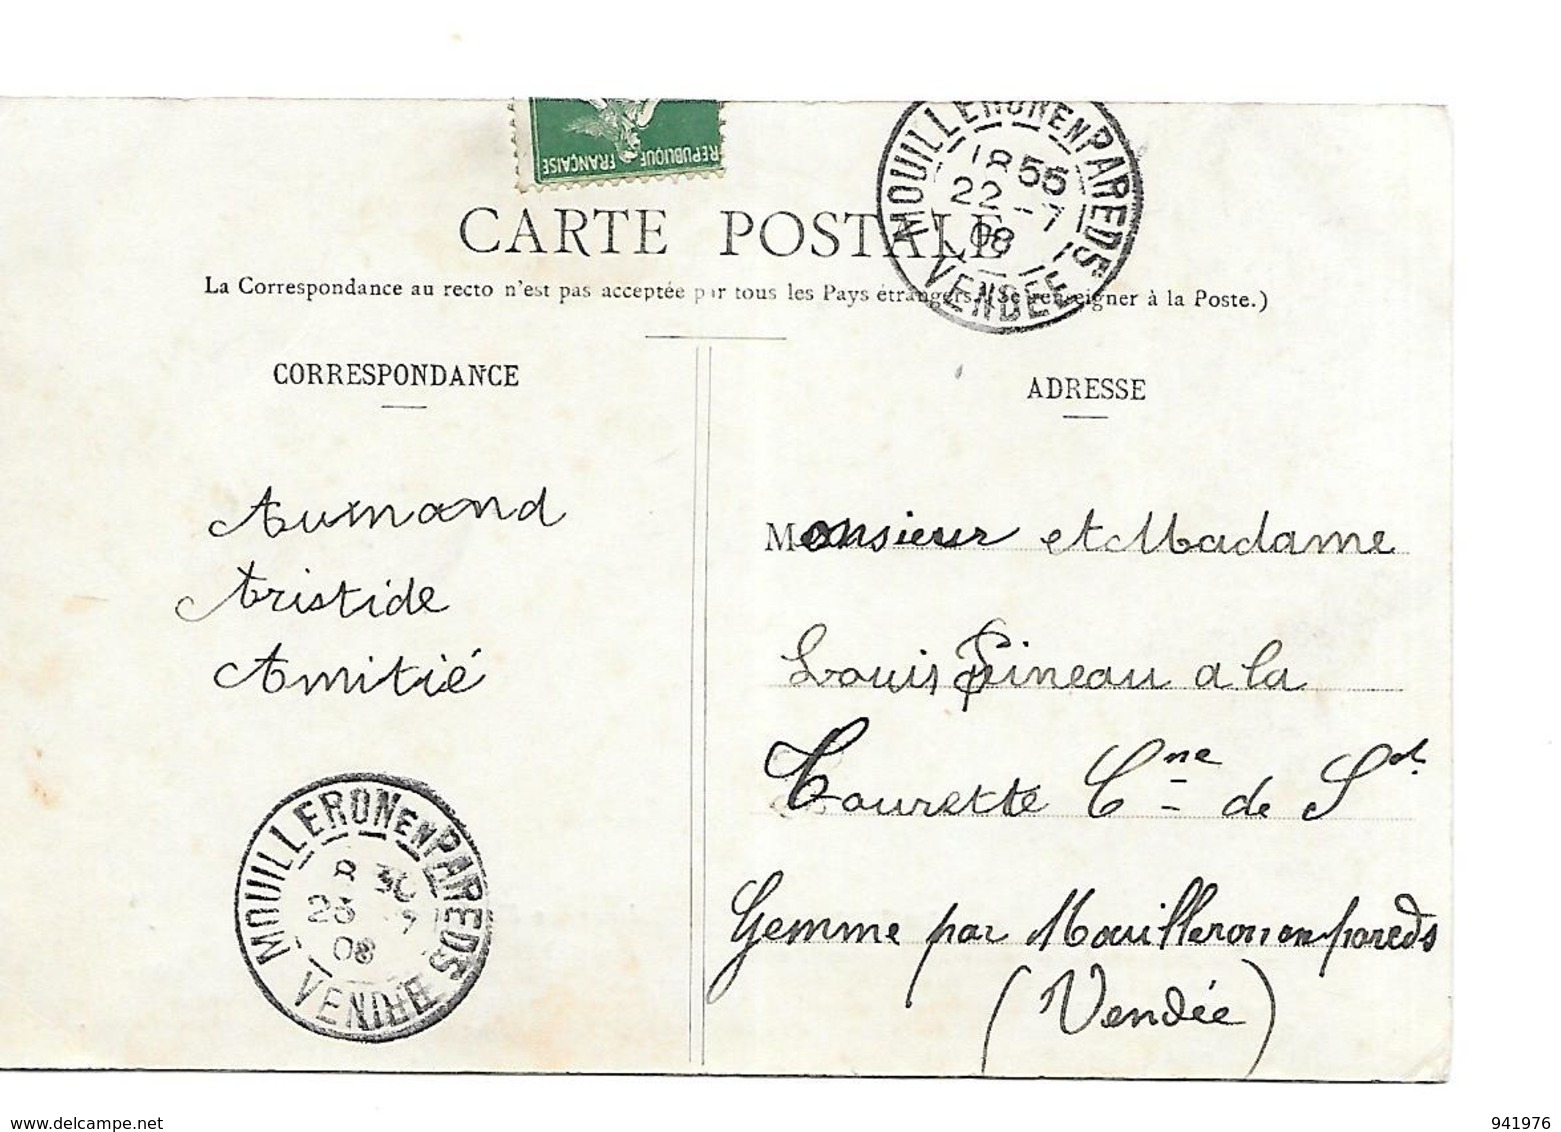 REPUBLIQUE FRANÇAISE
MOUILLERON EN PAREDS
18 55
22 - 7
08
VENDÉE
CARTE POSTALE
La Correspondance au recto n'est pas acceptée par tous les Pays étrangers. (Se renseigner à la Poste.)
CORRESPONDANCE
ADRESSE
Aumand
Aristide
Amitié
Monsieur et Madame
Louis Pineau a la
Tourette Cne de St
Gemme par Mouilleron en pareds
(Vendée)
MOUILLERON EN PAREDS
8 30
23 - 7
08
VENDÉE
www.delcampe.net
941976